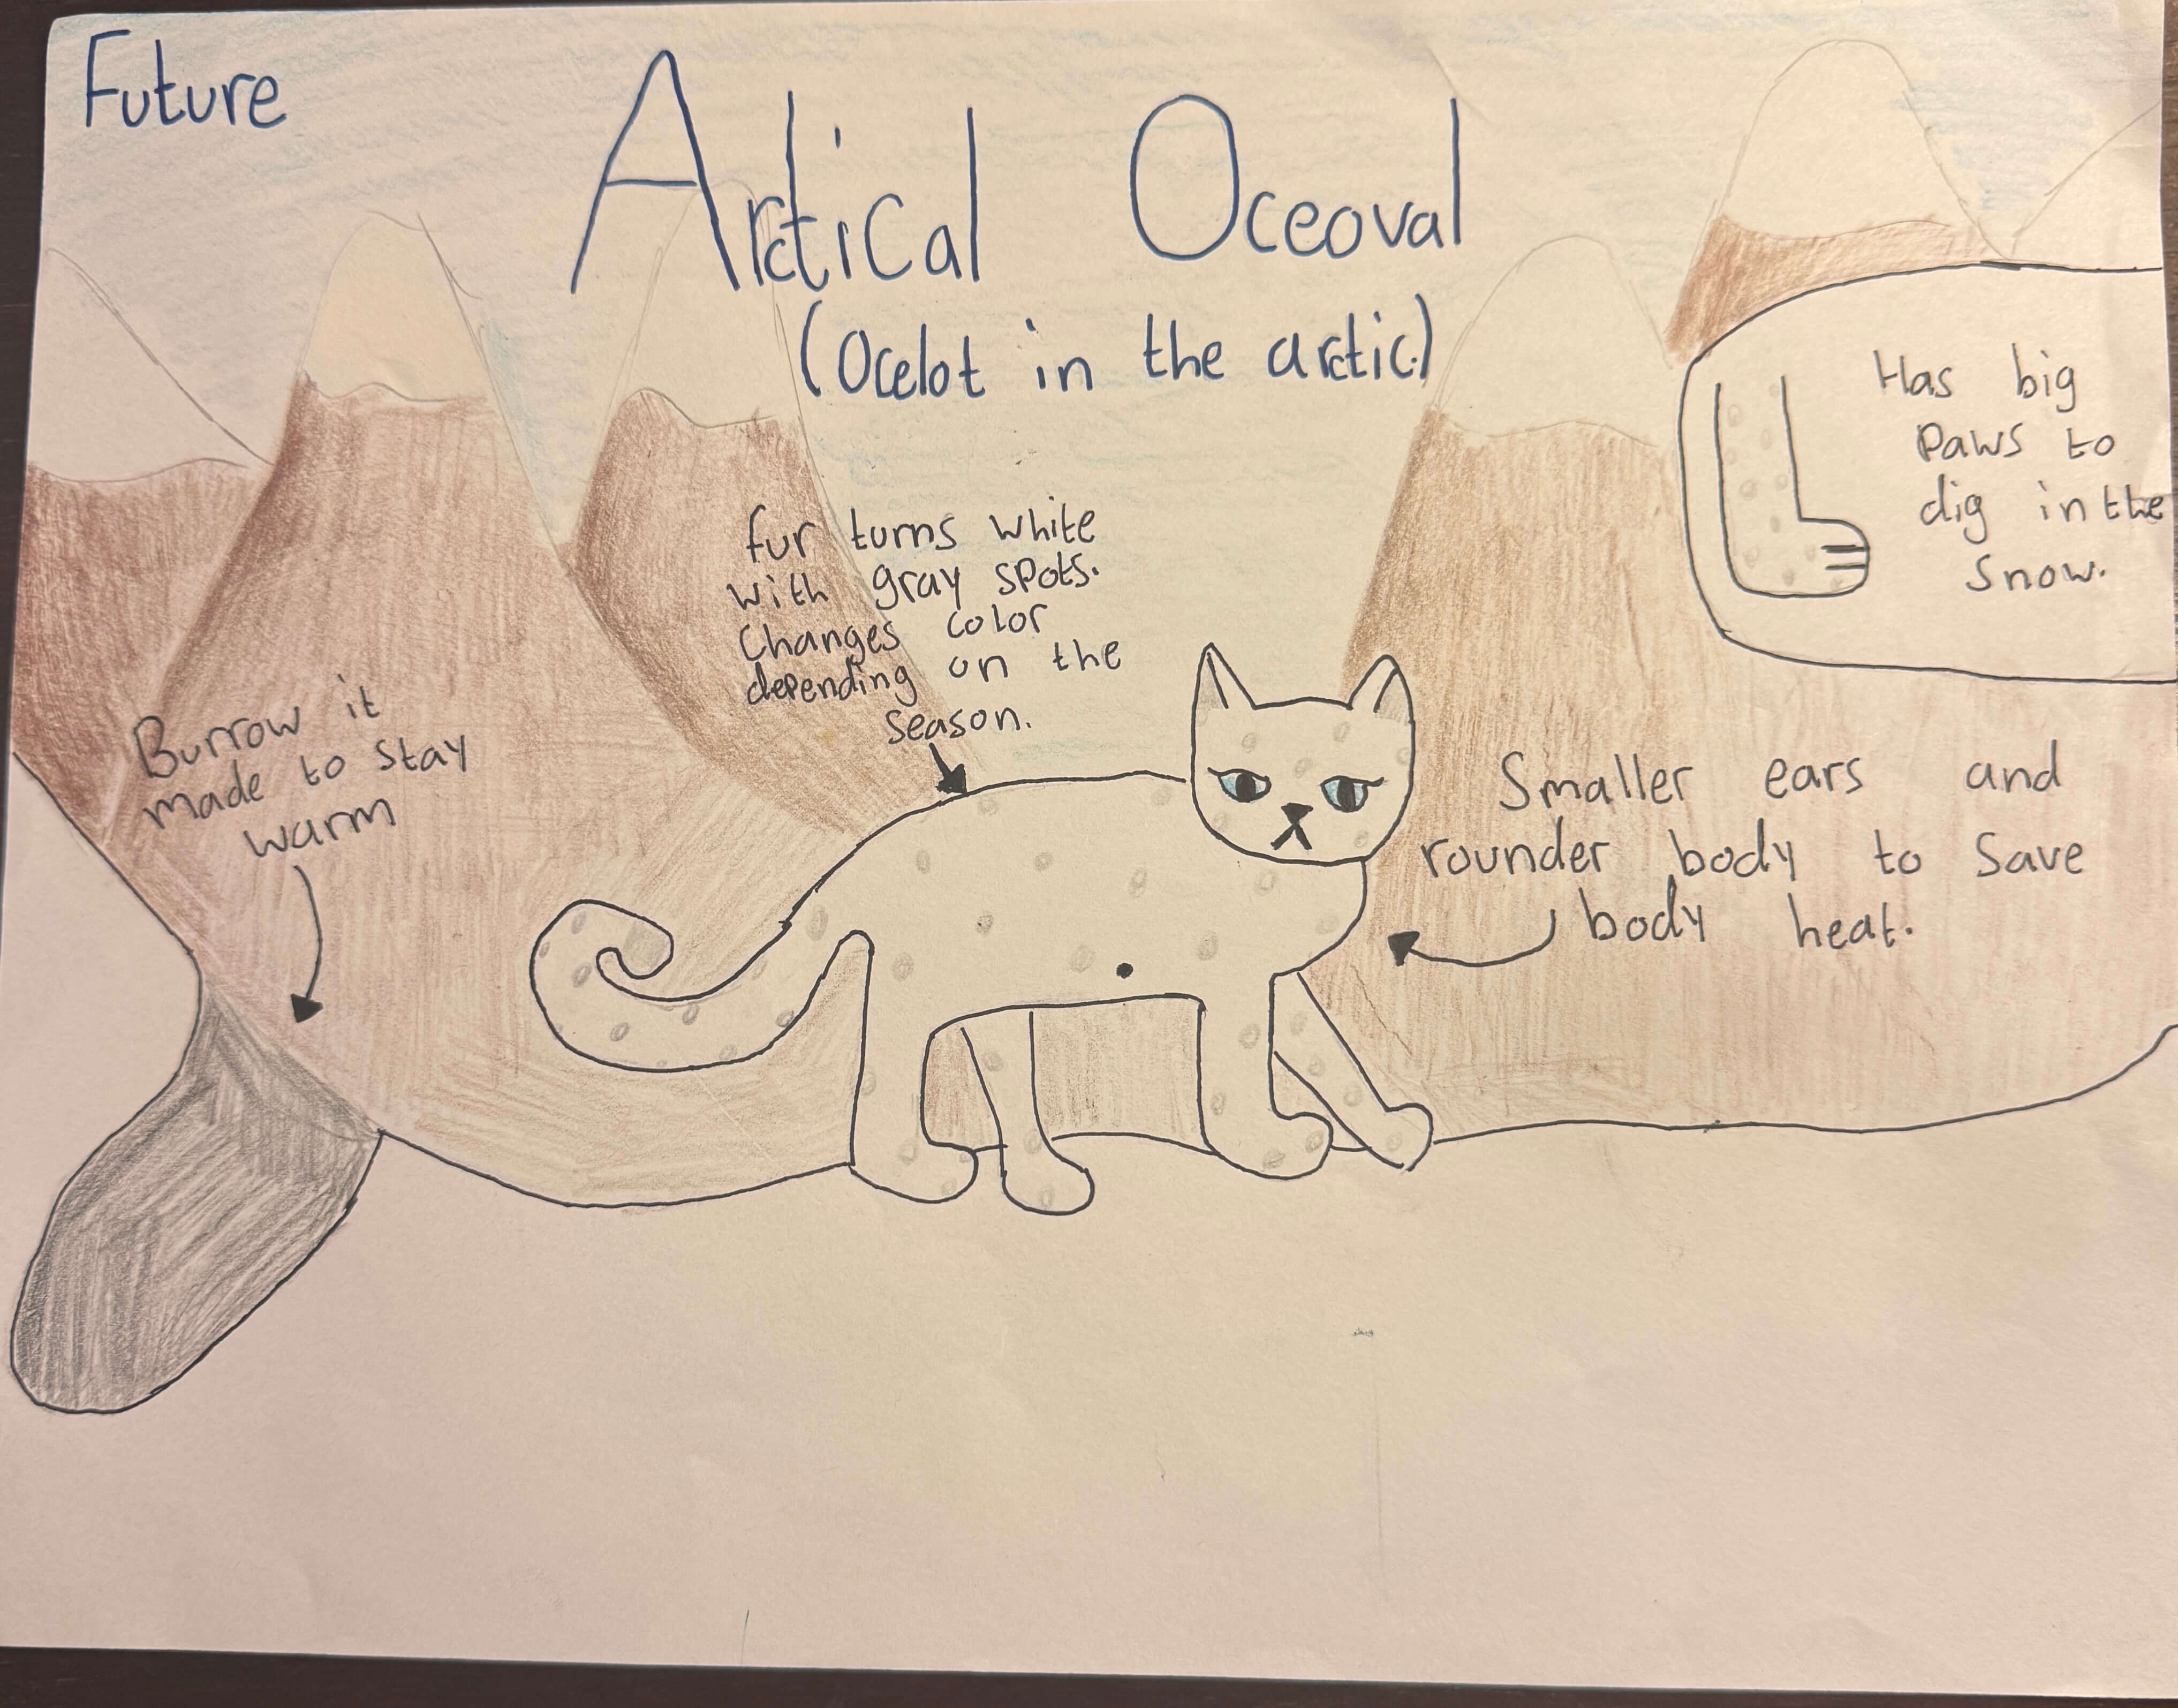 Future
Arctical Oceoval
(Ocelot in the arctic.)
Has big
paws to
dig in the
snow.
fur turns white
with gray spots.
Changes color
depending on the
season.
Burrow it
made to stay
warm
Smaller ears and
rounder body to save
body heat.